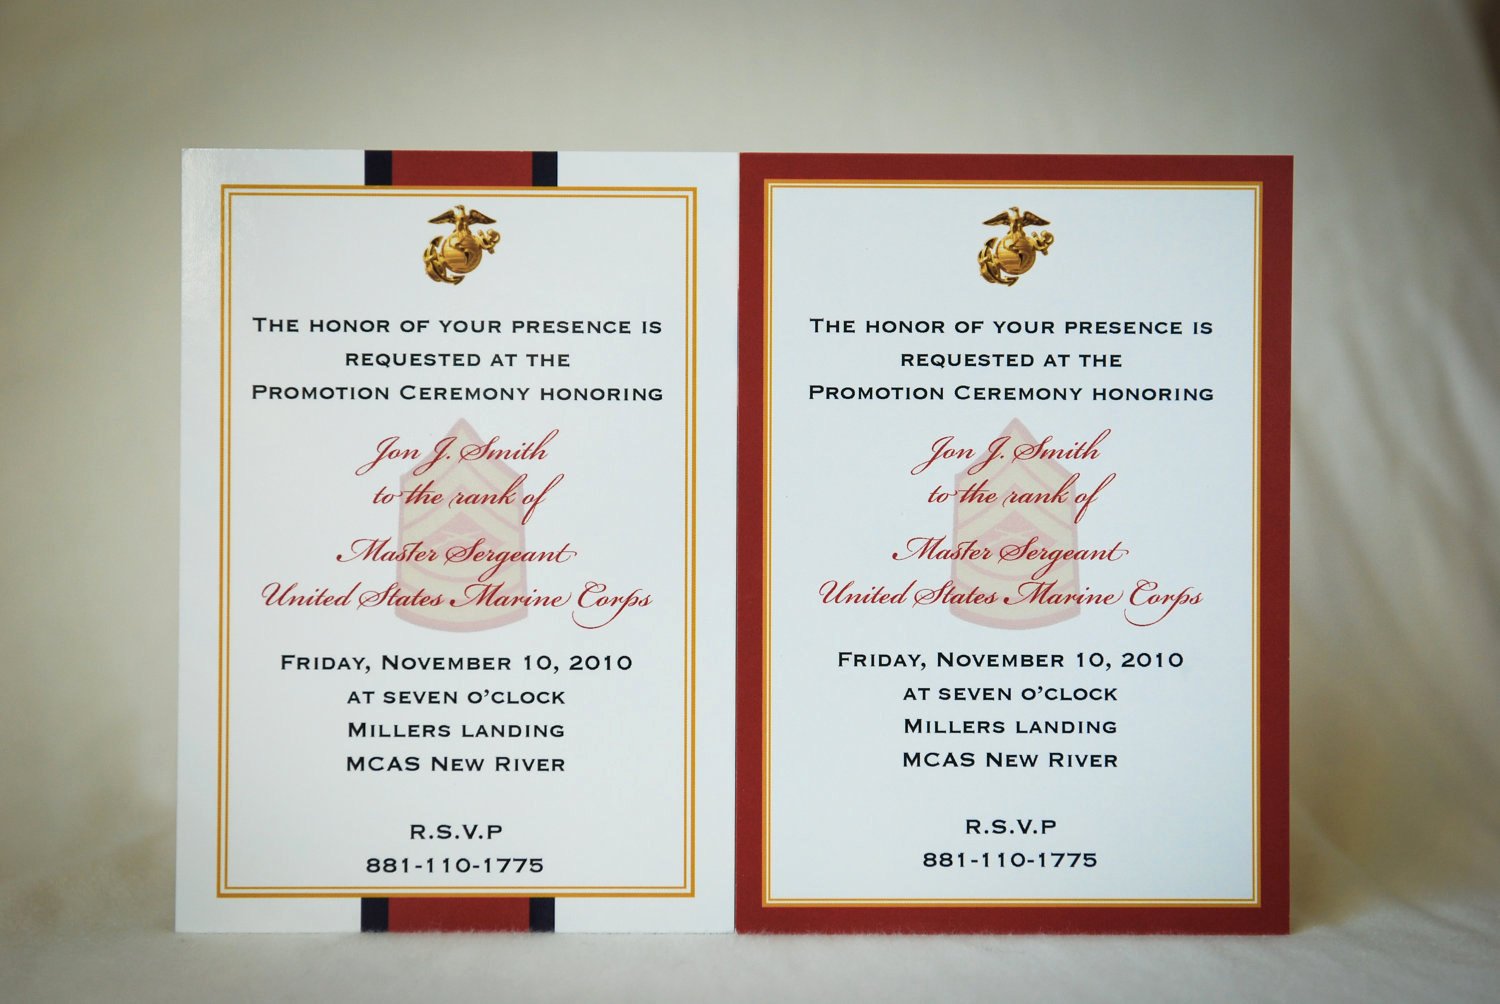 The honor of your presence is
requested at the
Promotion Ceremony honoring
Jon J. Smith
to the rank of
Master Sergeant
United States Marine Corps
Friday, November 10, 2010
at seven o’clock
Millers landing
MCAS New River
R.S.V.P
881-110-1775
The honor of your presence is
requested at the
Promotion Ceremony honoring
Jon J. Smith
to the rank of
Master Sergeant
United States Marine Corps
Friday, November 10, 2010
at seven o’clock
Millers landing
MCAS New River
R.S.V.P
881-110-1775